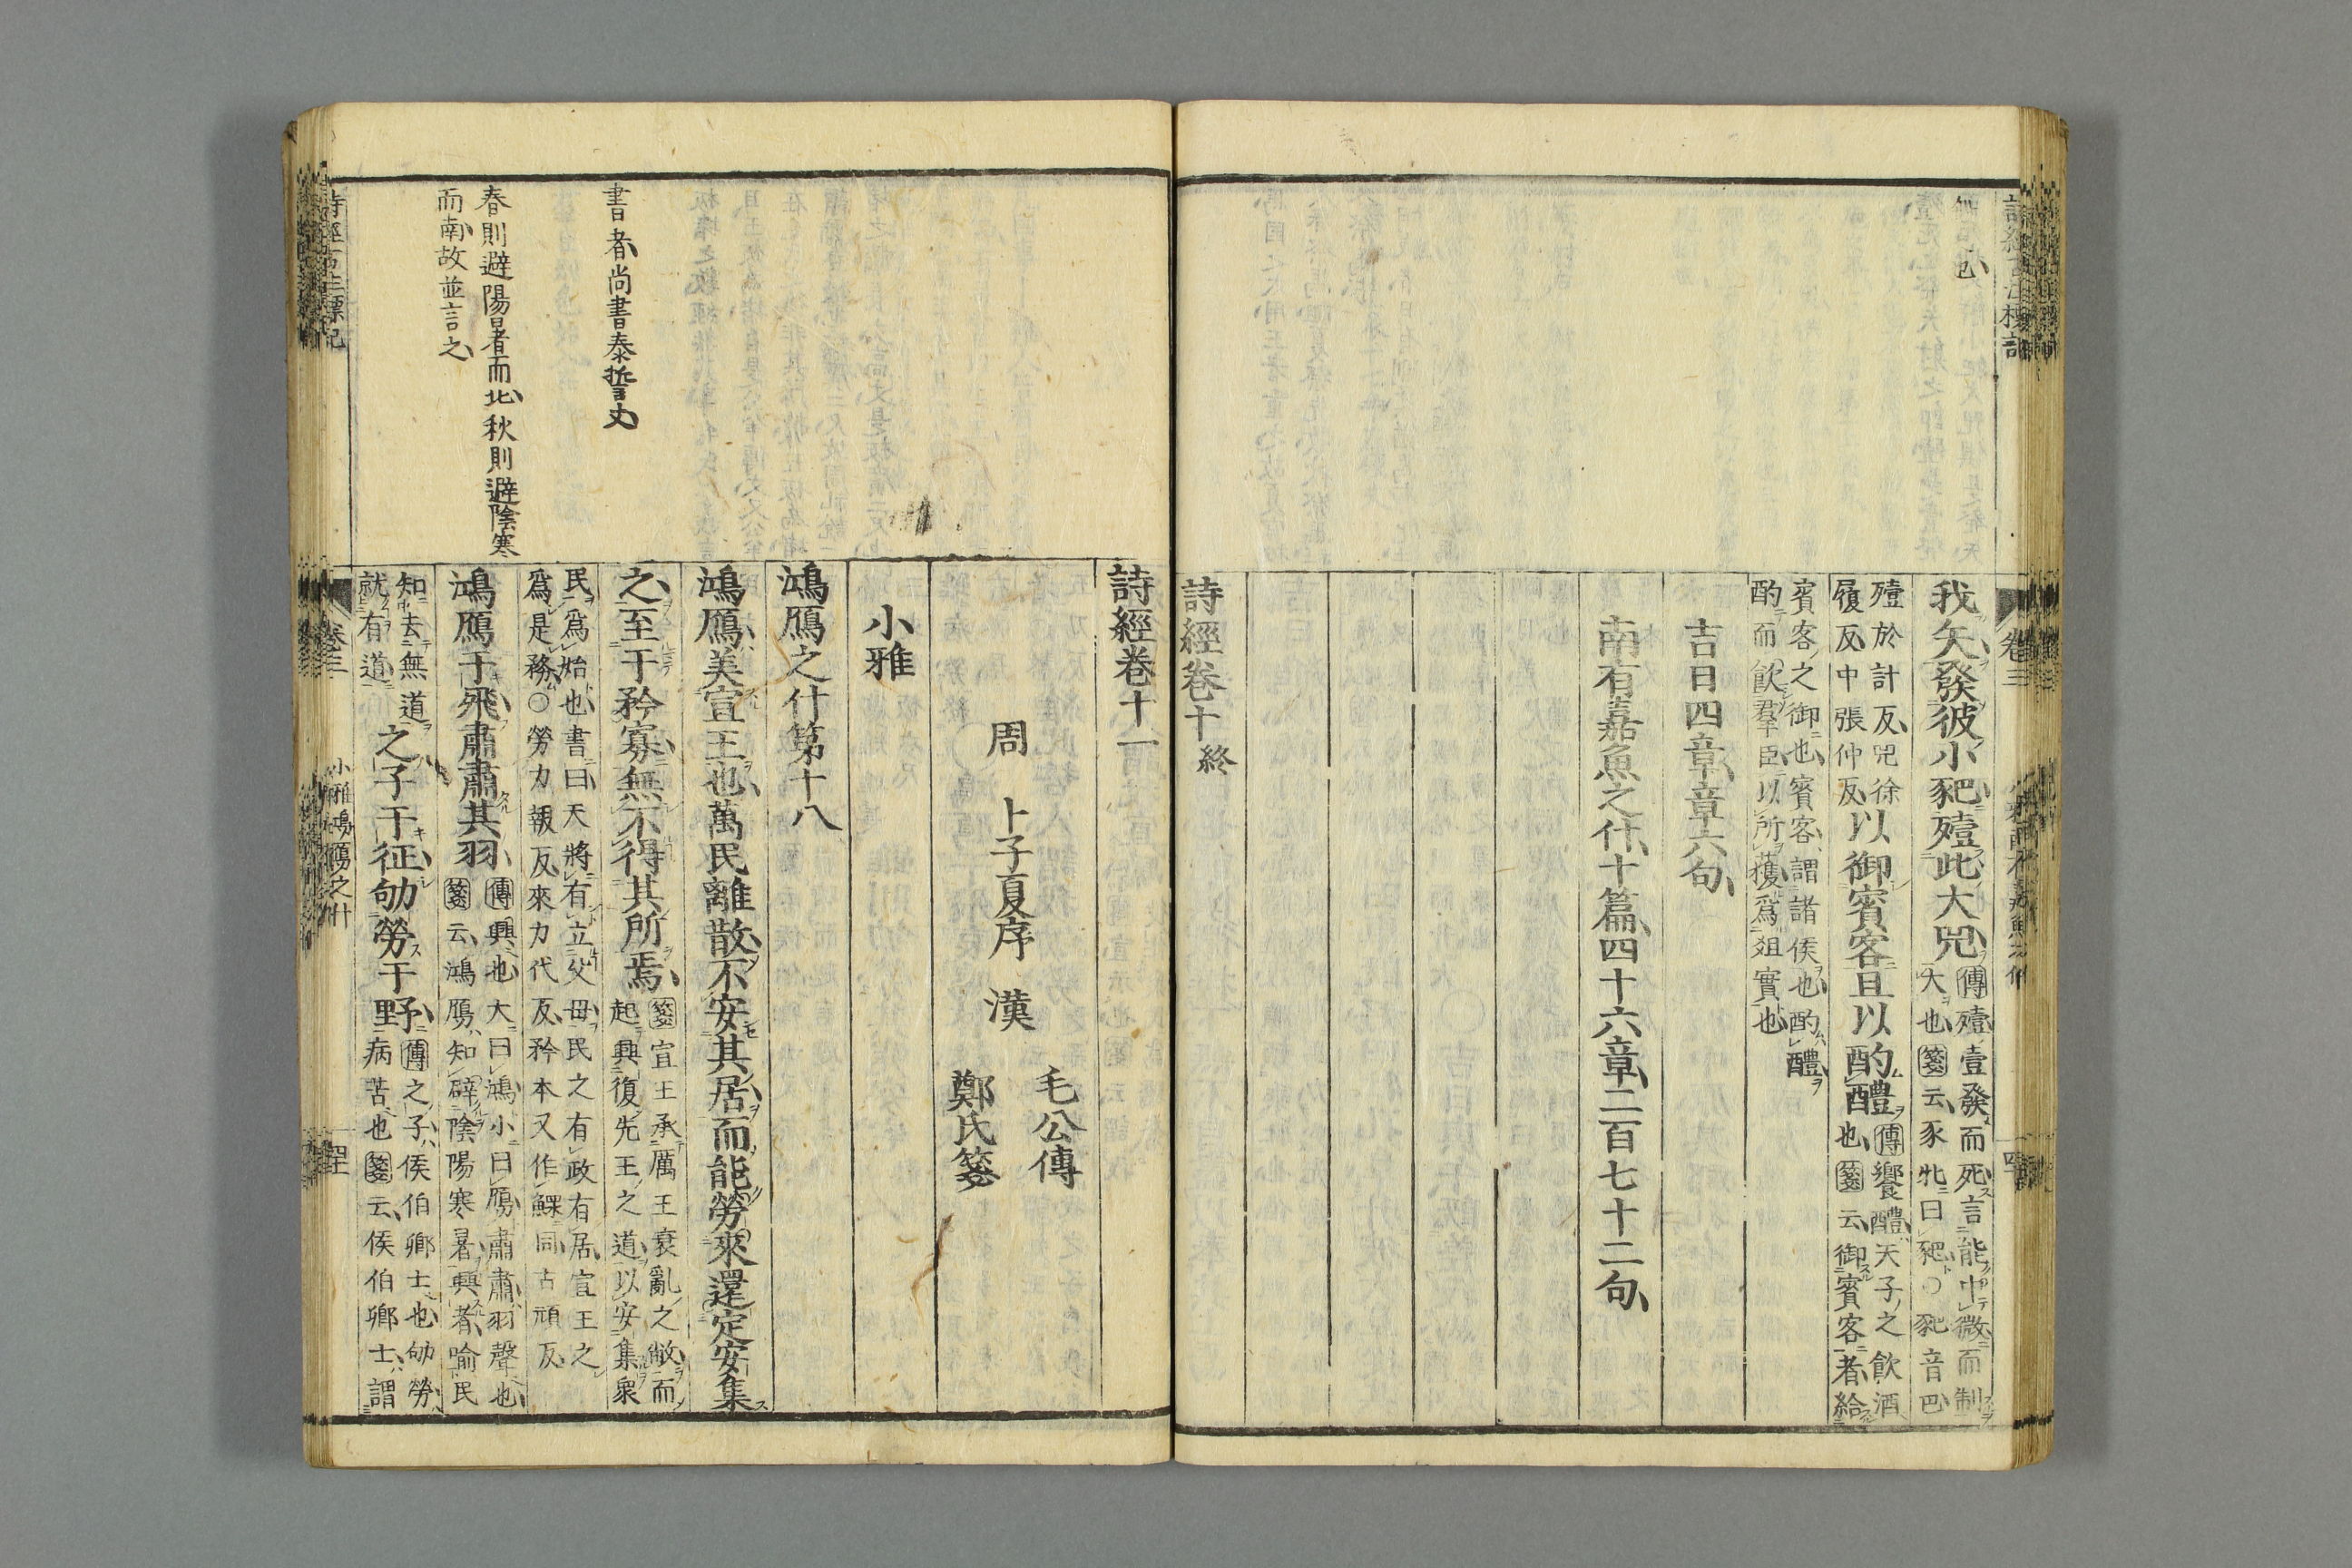 無㠯也
我矢發彼小豝殪此大兕
傳殪壹發而死言能中微而制
大也箋云豕牝曰豝○豝音巴
殪於計反兕徐
履反中張仲反
以御賓客且以酌醴
傳饗醴天子之飲酒
也箋云御賓客者給
賓客之御也賓客謂諸侯也酌醴
酌而飲羣臣以所獲爲俎實也
吉日四章章六句
南有嘉魚之什十篇四十六章二百七十二句
詩經卷十終
卷三
詩經卷十一
周 卜子夏序 漢
毛公傳
鄭氏箋
小雅
鴻鴈之什第十八
鴻鴈美宣王也萬民離散不安其居而能勞來還定安集
之至于矜寡無不得其所焉
箋宣王承厲王衰亂之敝而
起興復先王之道以安集衆
民爲始也書曰天將有立父母民之有政有居宣王之
爲是務○勞力報反來力代反矜本又作鰥同古頑反
鴻鴈于飛肅肅其羽
傳興也大曰鴻小曰鴈肅肅羽聲也
箋云鴻鴈知辟陰陽寒暑興者喻民
知去無道
就有道
之子于征劬勞于野
傳之子侯伯卿士也劬勞
病苦也箋云侯伯卿士謂
書者尚書泰誓文
春則避陽暑而北秋則避陰寒
而南故並言之
詩經古注標記
卷三
小雅鴻鴈之什